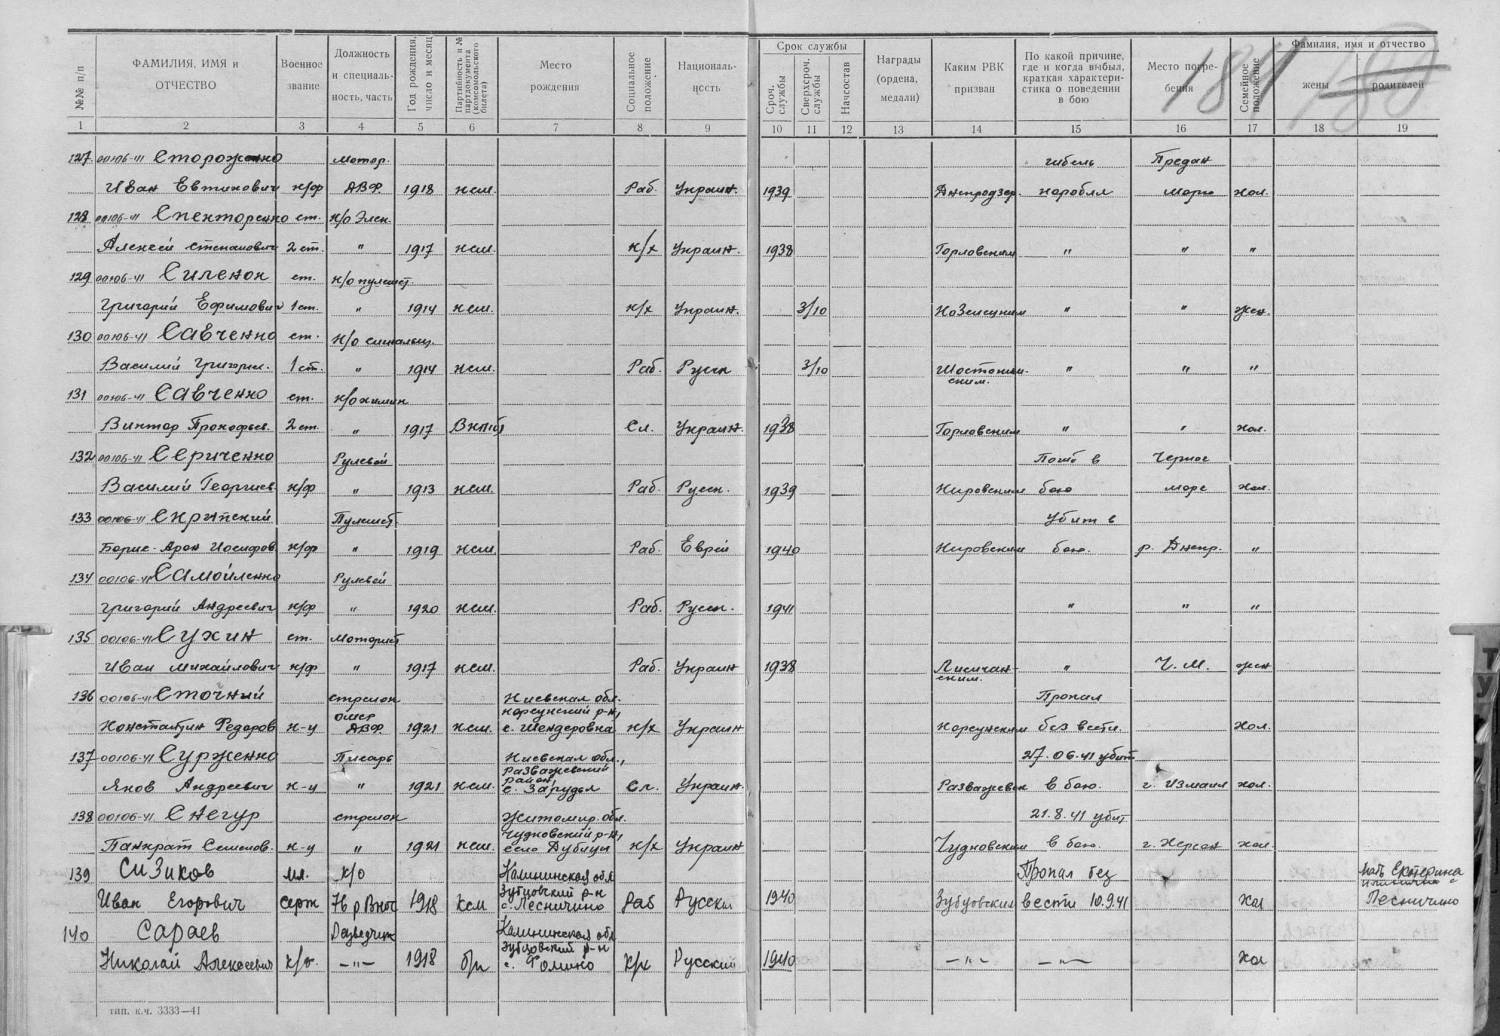 184
№№ п/п | ФАМИЛИЯ, ИМЯ и ОТЧЕСТВО | Военное звание | Должность и специальность, часть | Год рождения, число и месяц | Партийность и № партдокумента (комсомольского билета) | Место рождения | Социальное положение | Национальность | Срок службы: Сроч. службы | Сверхсроч. службы | Начсостав | Награды (ордена, медали) | Каким РВК призван | По какой причине, где и когда выбыл, краткая характеристика о поведении в бою | Место погребения | Семейное положение | Фамилия, имя и отчество: жены | родителей
1 2 3 4 5 6 7 8 9 10 11 12 13 14 15 16 17 18 19
127 00106-41 Стороженко мотор. гибель Предан
Иван Евтихович к/ф АВФ. 1918 ксм. Раб. Украин. 1939 Днепродзер. корабля морю хол.
128 00106-41 Спекторенко ст. к/о Элек.
Алексей Степанович 2 ст. " 1917 ксм. к/х Украин. 1938 Горловским " " "
129 00106-41 Силенок ст. к/о пулемет.
Григорий Ефимович 1 ст. " 1914 ксм. к/х Украин. 3/10 " " жен.
130 00106-41 Савченко ст. к/о сигнальщ.
Василий Григорьев. 1 ст. " 1914 ксм. Раб. Русск 3/10 Шосткин- " " "
ским.
131 00106-41 Савченко ст. к/о химик
Виктор Прокофьев. 2 ст. " 1917 ВКП(б) Сл. Украин. 1938 Горловским " " хол.
132 00106-41 Сериченко Рулевой Погиб в Черное
Василий Георгиев. к/ф " 1913 ксм. Раб. Русск. 1939 Кировским бою море хол.
133 00106-41 Скрипский Пулемет. Убит в
Борис-Арон Иосифов. к/ф " 1919 ксм. Раб. Еврей 1940 Кировским бою. р. Днепр. "
134 00106-41 Самойленко Рулевой
Григорий Андреевич к/ф " 1920 ксм. Раб. Русск. 1941 " " "
135 00106-41 Сухин ст. Моторист
Иван Михайлович к/ф " 1917 ксм. Раб. Украин 1938 Лисичан- " Ч. М. жен
ским.
136 00106-41 Сточный стрелок Киевская обл. Пропал
Корсунский р-н,
Константин Федоров. к-ц АВФ. 1921 ксм. с. Шендеровка к/х Украин Корсунским без вести. Хол.
137 00106-41 Сурженко Писарь Киевская обл., 27.06.41 убит
Розважевский
район,
Яков Андреевич к-ц " 1921 ксм. с. Зарудья Сл. Украин. Розважевск в бою. г. Измаил хол.
138 00106-41 Снегур стрелок Житомир. обл. 21.8.41 убит
Чудновский р-н,
Панкрат Семенов. к-ц " 1921 ксм. село Дубищи к/х Украин Чудновским в бою. г. Херсон хол.
139 Сизиков мл. к/о Калининская обл Пропал без мать Екатерина
Зубцовский р-н
Иван Егорович серж 1918 ксм с. Лесничино Раб Русски 1940 Зубцовским вести 10.9.41 Хол Лесничино
140 Сараев Разведчик Калининская обл
Зубцовский р-н
Николай Алексеевич к/ф. —"— 1918 б/п с. Фомино к/х Русский 1940 —"— —"— Хол
тип. к.ч. 3333—41